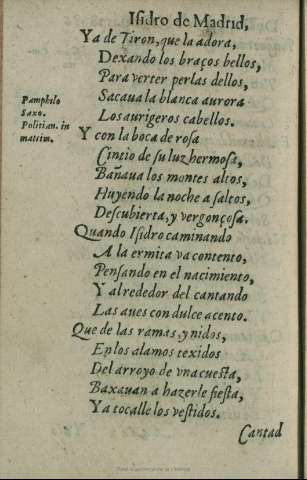 Isidro de Madrid,
Ya de Tiron, que la adora,
Dexando los braços bellos,
Para verter perlas dellos,
Pamphilo
Saxo.
Politian. in
Sacaua la blanca aurora
Los aurigeros cabellos.
Y con la boca de rosa
Cintio de su luz hermosa,
Bañaua los montes altos,
Huyendo la noche a saltos,
Descubierta, y vergonçosa.
Quando Isidro caminando
A la ermita va contento,
Pensando en el nacimiento,
Y alrededor del cantando
Las aues con dulce acento.
Que de las ramas, y nidos,
En los alamos texidos
Del arroyo de vna cuesta,
Baxauan a hazerle fiesta,
Y a tocalle los vestidos.
Cantad